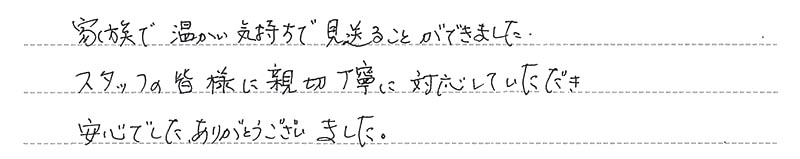 家族で温かい気持ちで見送ることができました.
スタッフの皆様に親切丁寧に対応していただき
安心でした、ありがとうございました。